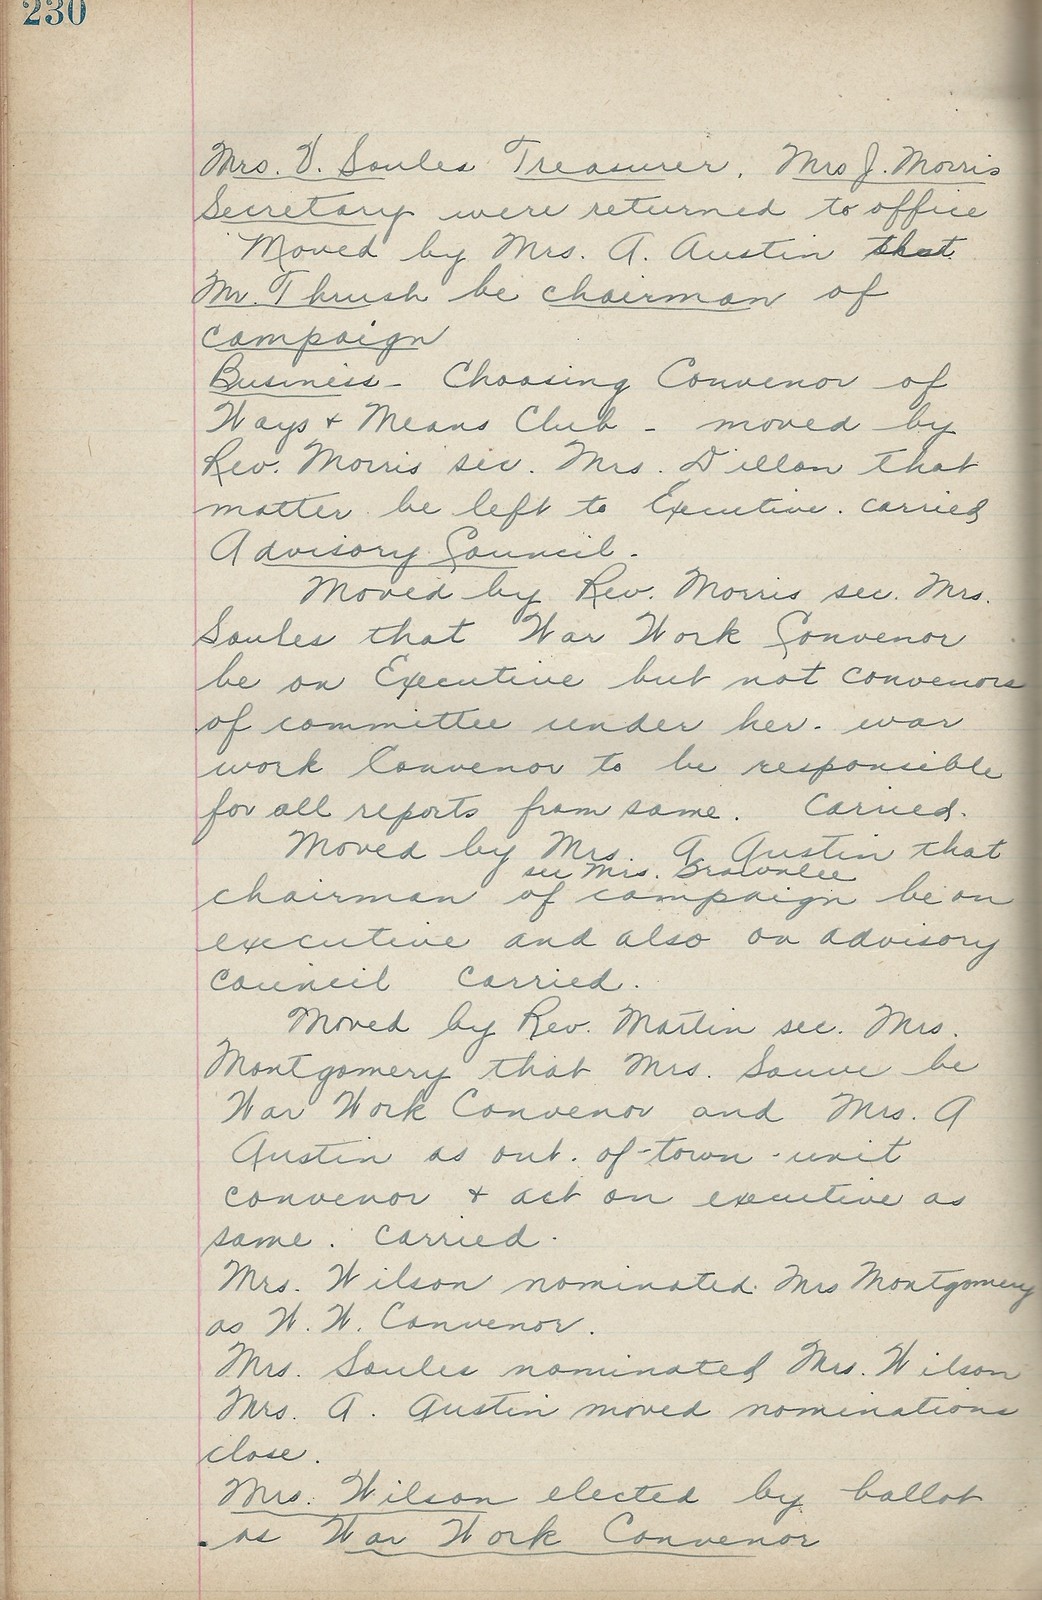 230
Mrs. V. Soules Treasurer, Mrs J. Morris
Secretary were returned to office
Moved by Mrs. A. Austin that
Mr. Thrush be chairman of
campaign
Business - Choosing Convenor of
Ways + Means Club - moved by
Rev. Morris sec. Mrs. Dillon that
matter be left to Executive. carried
Advisory Council -
Moved by Rev. Morris sec. Mrs.
Soules that War Work Convenor
be on Executive but not convenors
of committee under her - war
work Convenor to be responsible
for all reports from same. Carried.
Moved by Mrs. A Austin that
sec Mrs. Brownlee
chairman of campaign be on
executive and also on advisory
council carried.
Moved by Rev. Martin sec. Mrs.
Montgomery that Mrs. Sauve be
War Work Convenor and Mrs. A
Austin as out-of-town-unit
convenor + act on executive as
same. Carried.
Mrs. Wilson nominated Mrs Montgomery
as W. W. Convenor.
Mrs. Soules nominated Mrs. Wilson
Mrs. A. Austin moved nominations
close.
Mrs. Wilson elected by ballot
as War Work Convenor